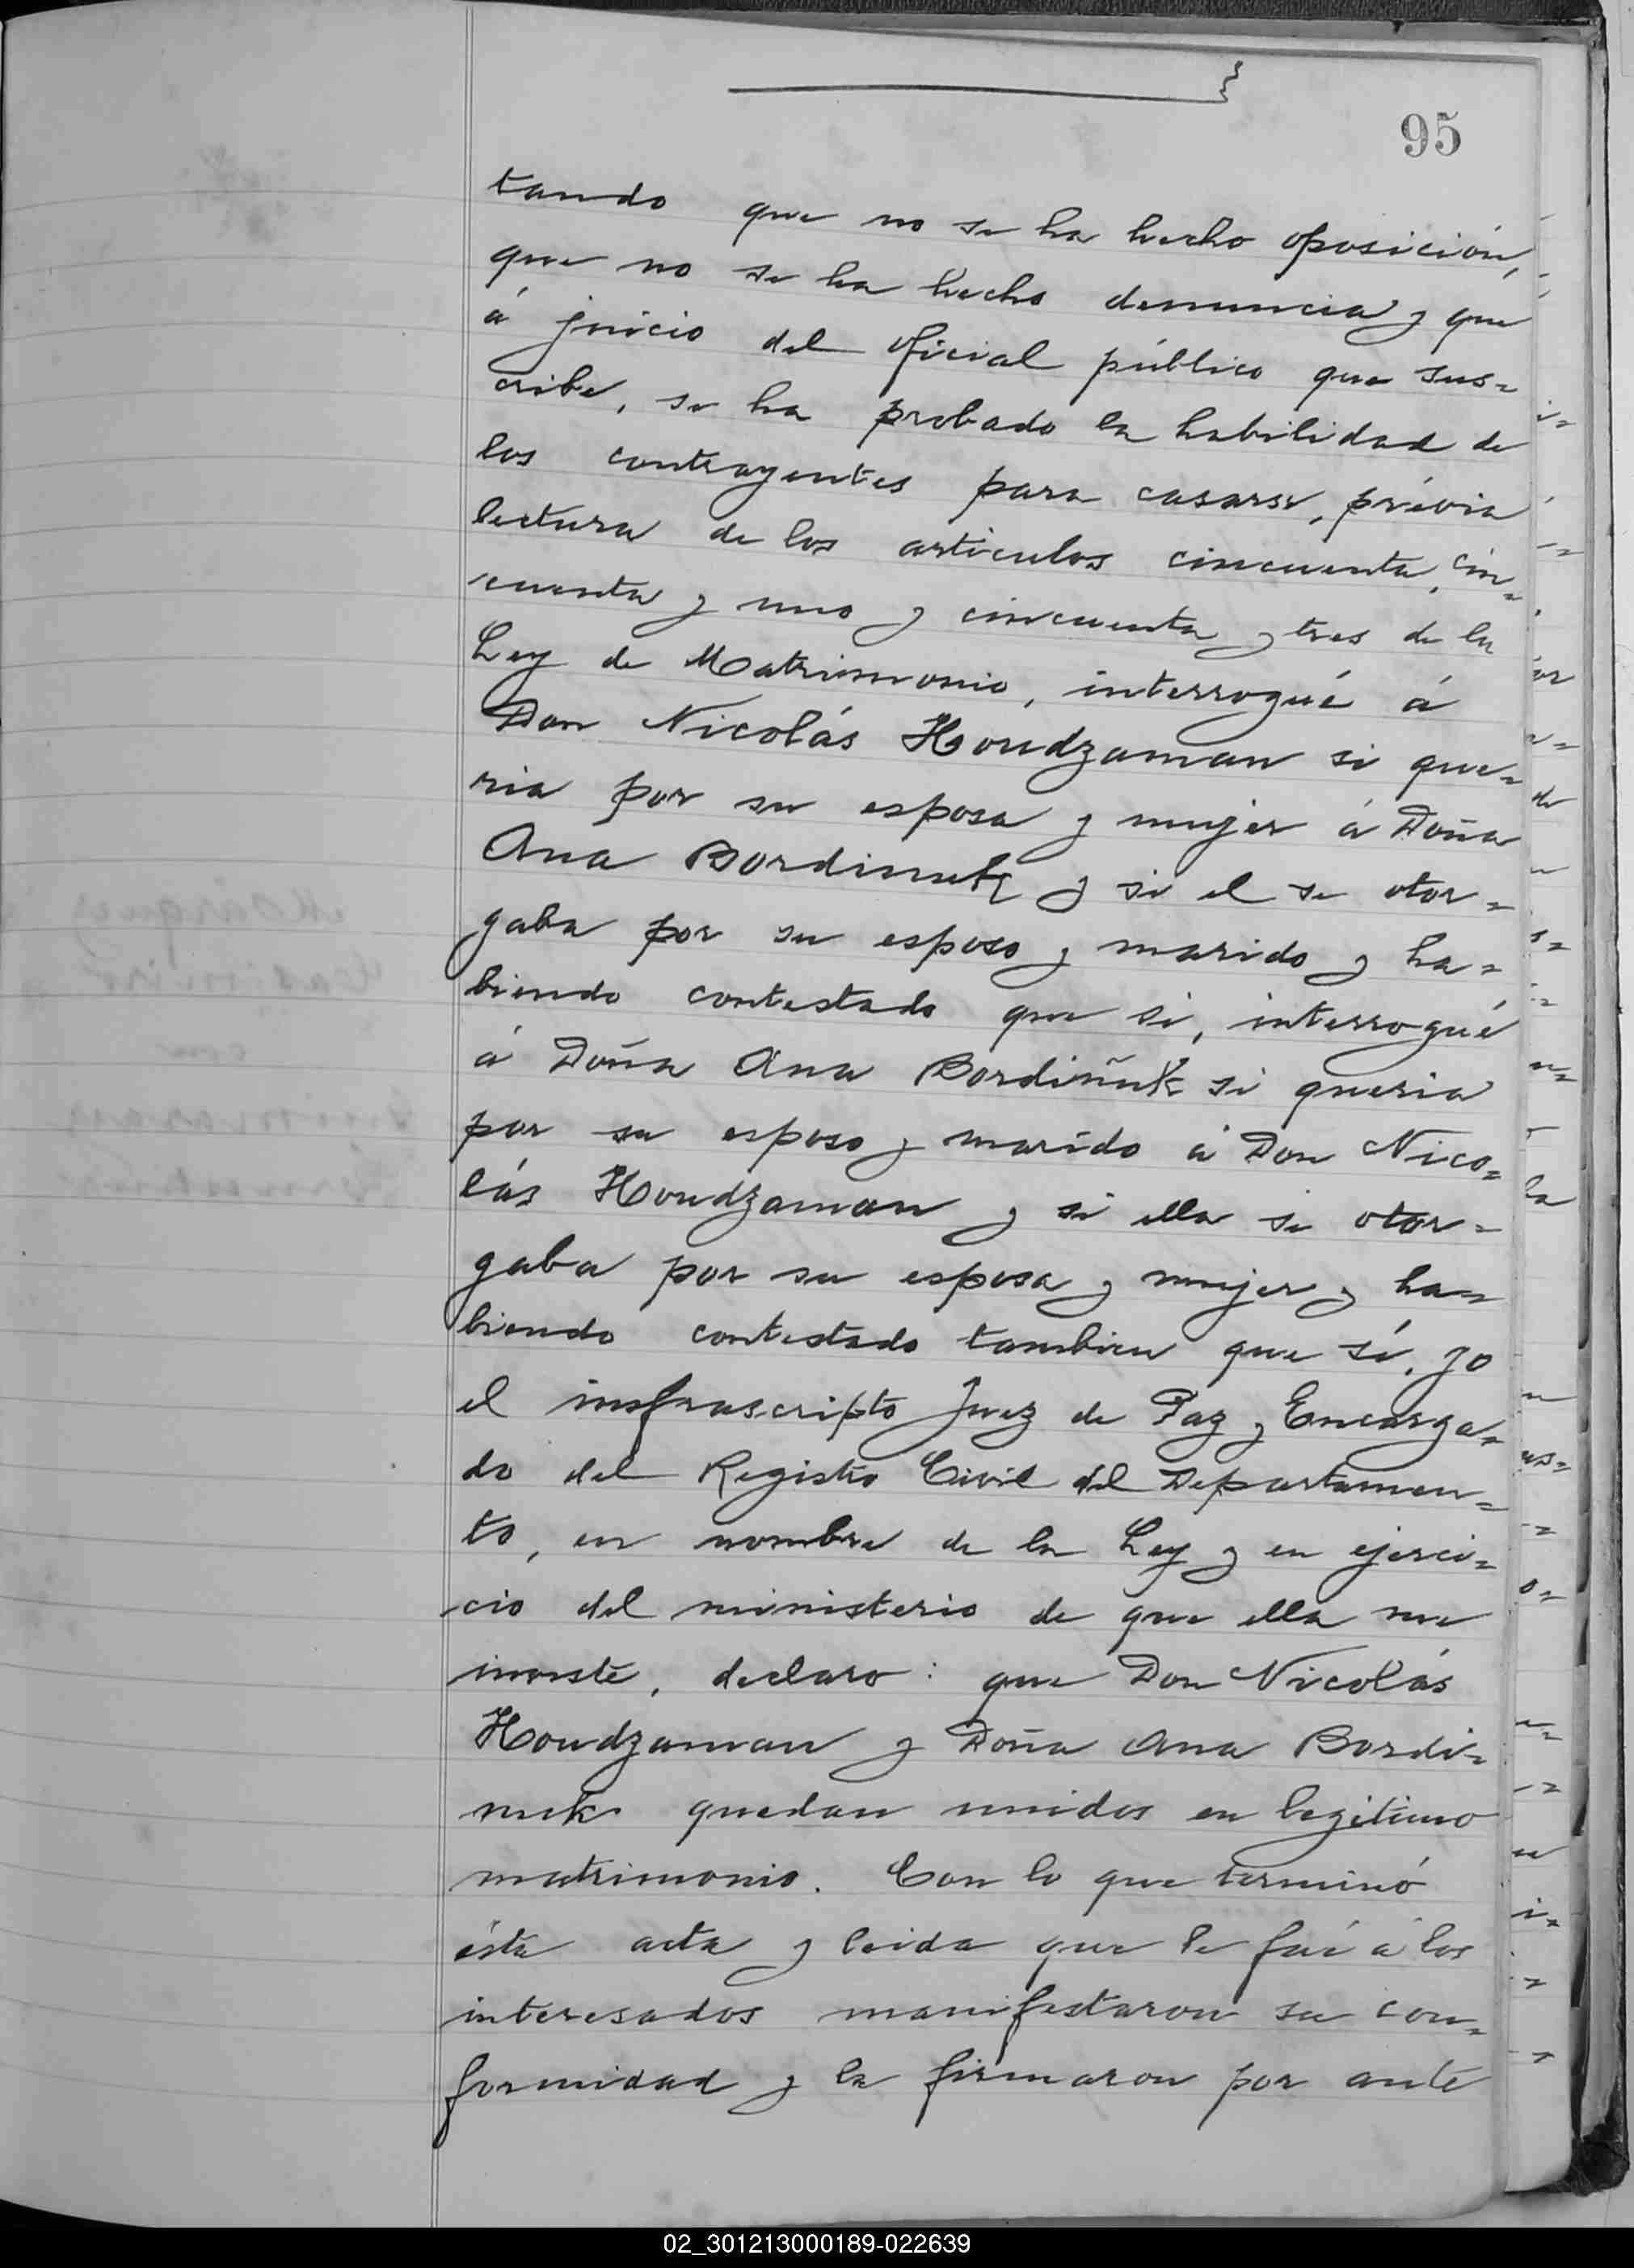 95
tando que no se ha hecho oposición,
que no se ha hecho denuncia y que
á juicio del oficial público que sus=
cribe, se ha probado la habilidad de
los contrayentes para casarse, prévia
lectura de los articulos cincuenta, cin=
cuenta y uno y cincuenta y tres de la
Ley de Matrimonio, interrogué á
Don Nicolás Houdzaman si que=
ria por su esposa y mujer á Doña
Ana Bordinuk y si el se otor=
gaba por su esposo y marido y ha=
biendo contestado que si, interrogué
á Doña Ana Bordiñuk si queria
por su esposo y marido á Don Nico=
lás Houdzaman y si ella se otor=
gaba por su esposa y mujer y ha=
biendo contestado tambien que sí, yo
el insfrascripto Juez de Paz y Encarga=
do del Registro Civil del Departamen=
to, en nombre de la Ley y en ejerci=
cio del ministerio de que ella me
inviste, declaro: que Don Nicolás
Houdzaman y Doña Ana Bordi=
nuk quedan unidos en legitimo
matrimonio. Con lo que terminó
ésta acta y leida que le fué á los
interesados manifestaron su con=
formidad y la firmaron por ante
02_301213000189-022639